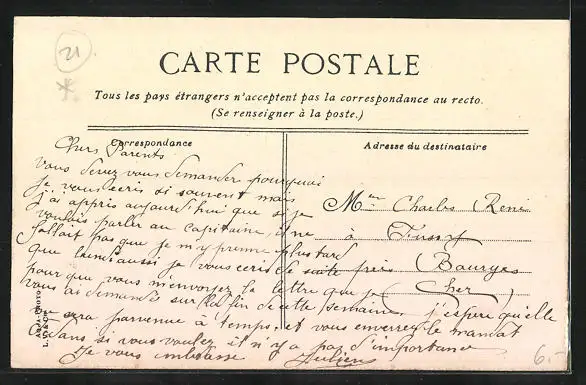 21
CARTE POSTALE
Tous les pays étrangers n'acceptent pas la correspondance au recto.
(Se renseigner à la poste.)
Correspondance
Adresse du destinataire
Chers Parents
vous devez vous demander pourquoi
je vous ecris si souvent mais
j'ai appris aujourd'hui que si je
voulais parler au capitaine, il ne
fallait pas que je m'y prenne plus tard
que lundi aussi je vous ecris de suite
pour que vous m'envoyez la lettre que je
vous ai demandé sur la fin de cette semaine, j'espere qu'elle
sera parvenue à temps, et vous enverrez le mandat
dans si vous voulez il n'y a pas d'importance
Je vous embrasse Julien
Mme Charles René
à Fussy
près Bourges
(Cher)
6.-